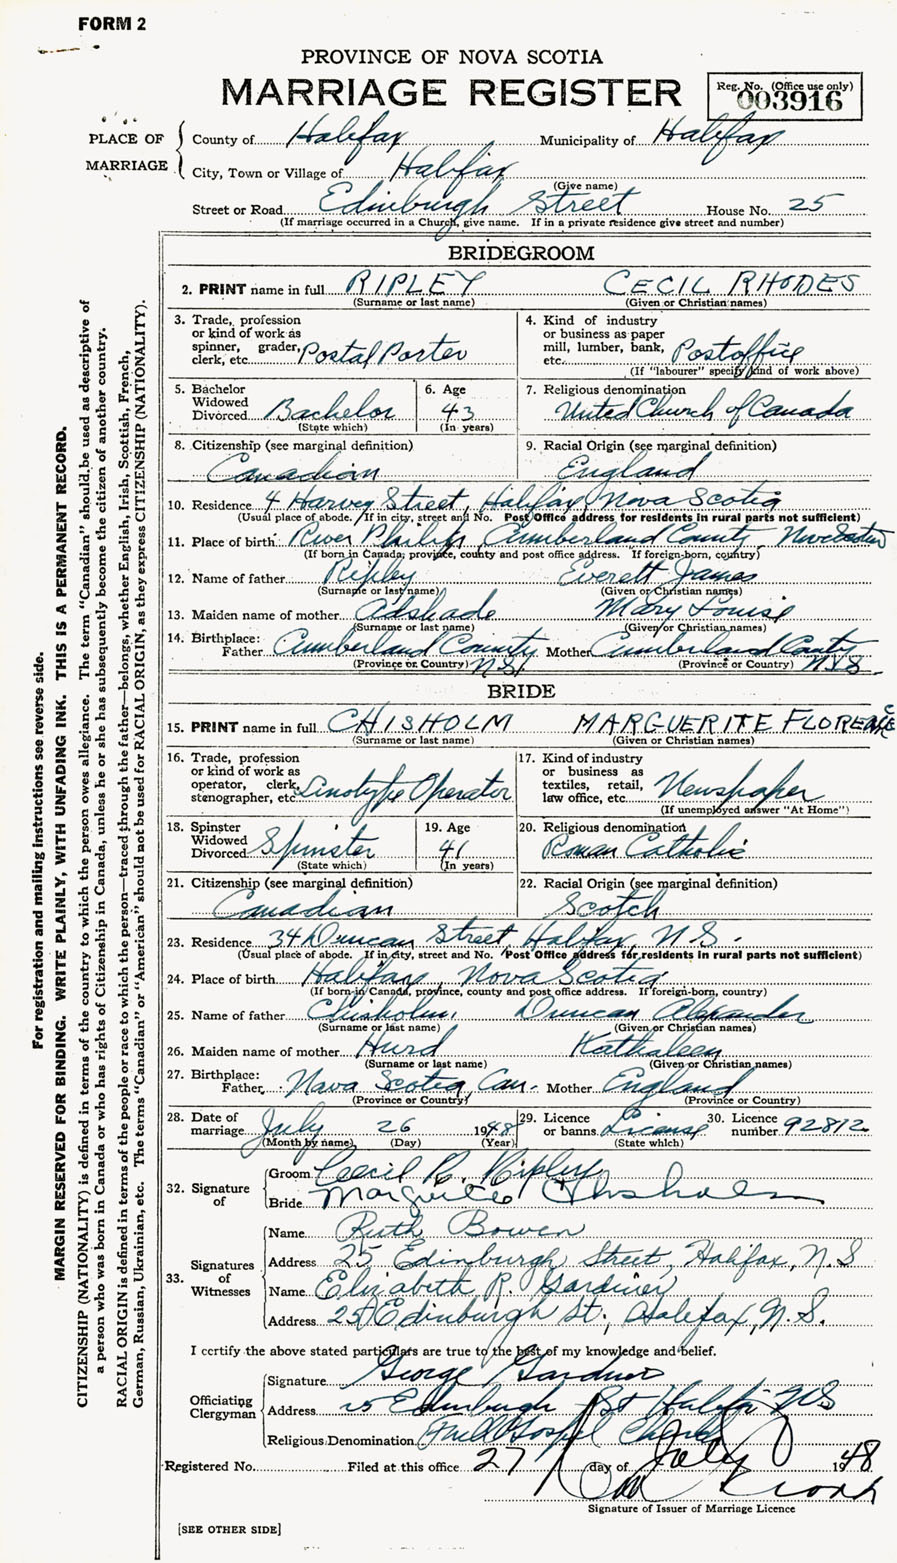 FORM 2
PROVINCE OF NOVA SCOTIA
MARRIAGE REGISTER
Reg. No. (Office use only)
003916
PLACE OF MARRIAGE
County of Halifax Municipality of Halifax
City, Town or Village of Halifax
(Give name)
Street or Road Edinburgh Street House No. 25
(If marriage occurred in a Church, give name. If in a private residence give street and number)
BRIDEGROOM
2. PRINT name in full RIPLEY CECIL RHODES
(Surname or last name) (Given or Christian names)
3. Trade, profession or kind of work as spinner, grader, clerk, etc. Postal Porter
4. Kind of industry or business as paper mill, lumber, bank, etc. Postoffice
(If "labourer" specify kind of work above)
5. Bachelor Widowed Divorced Bachelor
(State which)
6. Age 43
(In years)
7. Religious denomination
United Church of Canada
8. Citizenship (see marginal definition)
Canadian
9. Racial Origin (see marginal definition)
England
10. Residence 4 Harvey Street, Halifax, Nova Scotia
(Usual place of abode. If in city, street and No. Post Office address for residents in rural parts not sufficient)
11. Place of birth River Philip, Cumberland County Nova Scotia
(If born in Canada, province, county and post office address. If foreign-born, country)
12. Name of father Ripley Everett James
(Surname or last name) (Given or Christian names)
13. Maiden name of mother Adshade Mary Louise
(Surname or last name) (Given or Christian names)
14. Birthplace: Father Cumberland County N.S. Mother Cumberland County N.S.
(Province or Country) (Province or Country)
BRIDE
15. PRINT name in full CHISHOLM MARGUERITE FLORENCE
(Surname or last name) (Given or Christian names)
16. Trade, profession or kind of work as operator, clerk, stenographer, etc. Linotype Operator
17. Kind of industry or business as textiles, retail, law office, etc. Newspaper
(If unemployed answer "At Home")
18. Spinster Widowed Divorced Spinster
(State which)
19. Age 41
(In years)
20. Religious denomination
Roman Catholic
21. Citizenship (see marginal definition)
Canadian
22. Racial Origin (see marginal definition)
Scotch
23. Residence 34 Duncan Street, Halifax, N.S.
(Usual place of abode. If in city, street and No. Post Office address for residents in rural parts not sufficient)
24. Place of birth Halifax, Nova Scotia
(If born in Canada, province, county and post office address. If foreign-born, country)
25. Name of father Chisholm, Duncan Alexander
(Surname or last name) (Given or Christian names)
26. Maiden name of mother Hurd Kathaleen
(Surname or last name) (Given or Christian names)
27. Birthplace: Father Nova Scotia, Can. Mother England
(Province or Country) (Province or Country)
28. Date of marriage July 26 1948
(Month by name) (Day) (Year)
29. Licence or banns License
(State which)
30. Licence number 92812
32. Signature of
Groom Cecil R. Ripley
Bride Marguerite Chisholm
33. Signatures of Witnesses
Name Ruth Bowen
Address 25 Edinburgh Street, Halifax, N.S
Name Elizabeth R. Gardiner
Address 25 Edinburgh St., Halifax, N.S.
I certify the above stated particulars are true to the best of my knowledge and belief.
Officiating Clergyman
Signature George Gardner
Address 25 Edinburgh St Halifax NS
Religious Denomination Full Gospel Church
Registered No. Filed at this office 27 day of July 1948
Signature of Issuer of Marriage Licence
[SEE OTHER SIDE]
For registration and mailing instructions see reverse side.
MARGIN RESERVED FOR BINDING. WRITE PLAINLY, WITH UNFADING INK. THIS IS A PERMANENT RECORD.
CITIZENSHIP (NATIONALITY) is defined in terms of the country to which the person owes allegiance. The term "Canadian" should be used as descriptive of
a person who was born in Canada or who has rights of Citizenship in Canada, unless he or she has subsequently become the citizen of another country.
RACIAL ORIGIN is defined in terms of the people or race to which the person—traced through the father—belongs, whether English, Irish, Scottish, French,
German, Russian, Ukrainian, etc. The terms "Canadian" or "American" should not be used for RACIAL ORIGIN, as they express CITIZENSHIP (NATIONALITY).